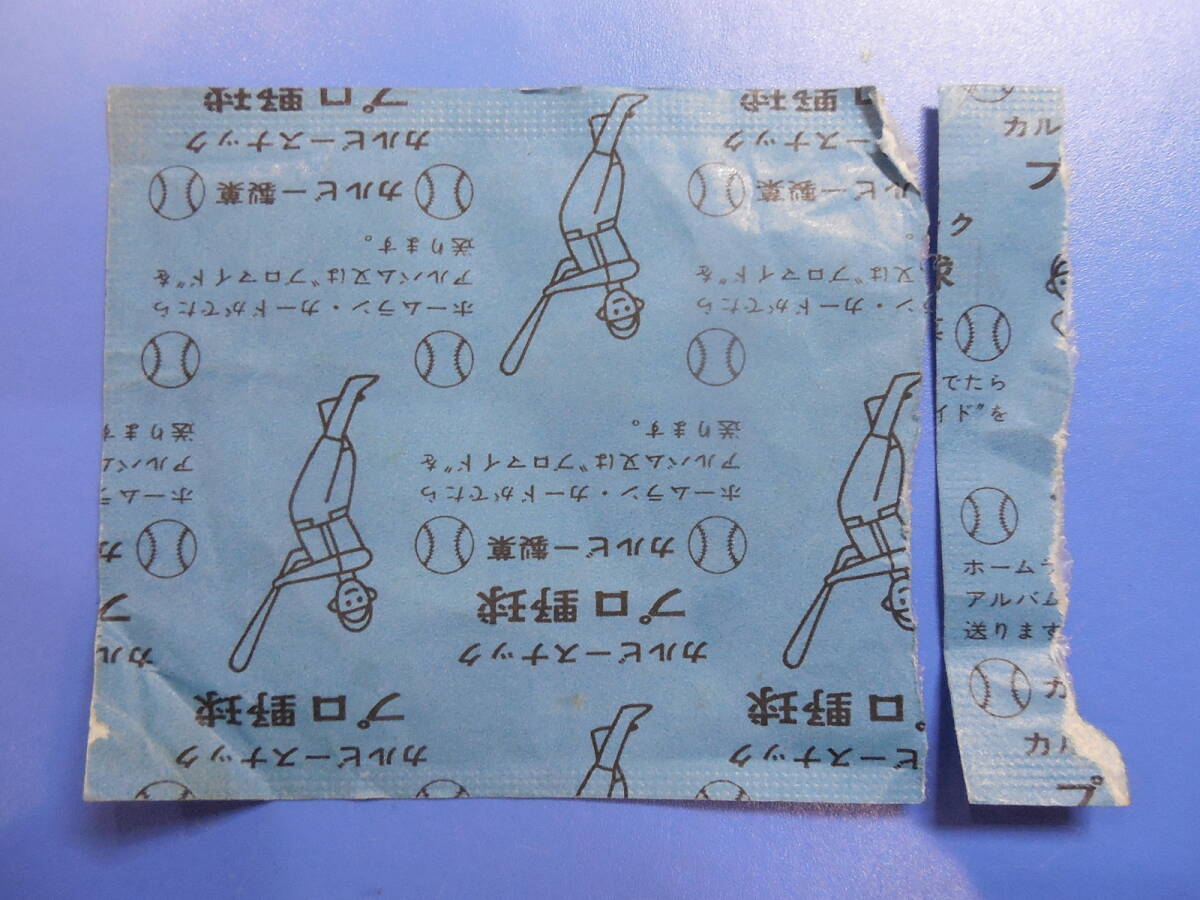 ビースナック
カルビースナック
プロ野球
プロ野球
カルビースナック
カル
プロ野球
プ
カルビー製菓
カ
ホームラン・カードがでたら
ホームラ
アルバム又は〝ブロマイド〟を
アルバム
送ります。
送ります
ラン・カードがでたら
ホームラン・カードがでたら
又は〝ブロマイド〟を
アルバム又は〝ブロマイド〟を
。
送ります。
ルビー製菓
カルビー製菓
ースナック
カルビースナック
ロ野球
プロ野球
カル
プ
ック
球
でたら
イド〟を
ホーム
アルバム
送ります
カ
カル
プ